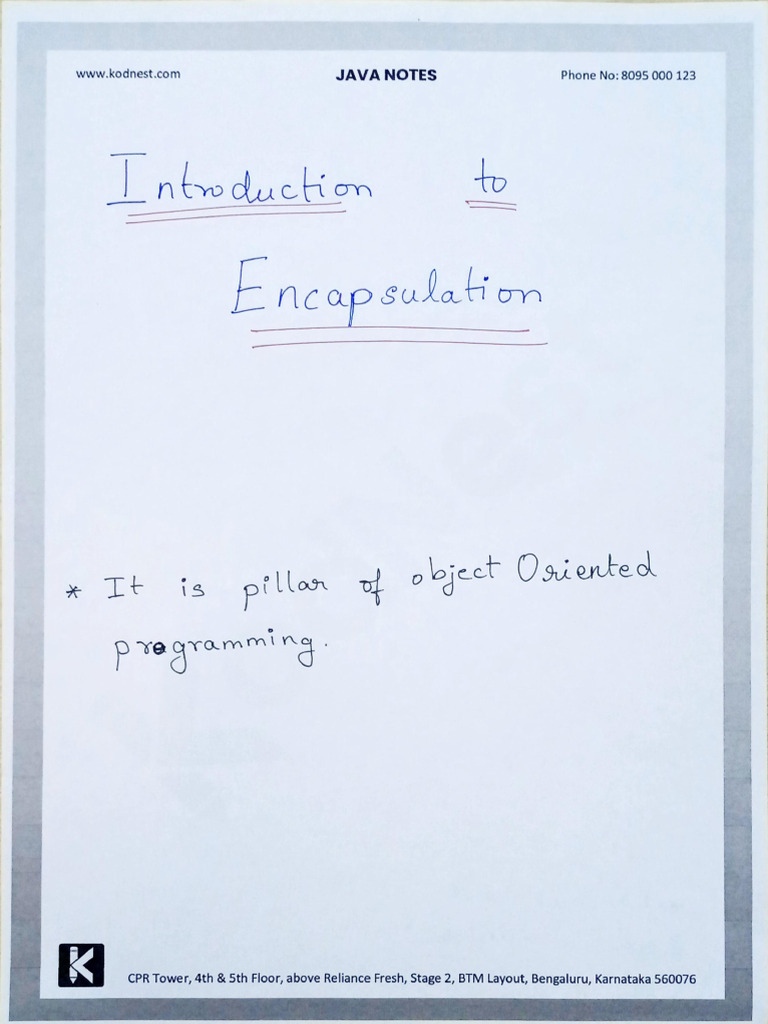 www.kodnest.com JAVA NOTES Phone No: 8095 000 123
Introduction to
Encapsulation
* It is pillar of object Oriented
programming.
K
CPR Tower, 4th & 5th Floor, above Reliance Fresh, Stage 2, BTM Layout, Bengaluru, Karnataka 560076